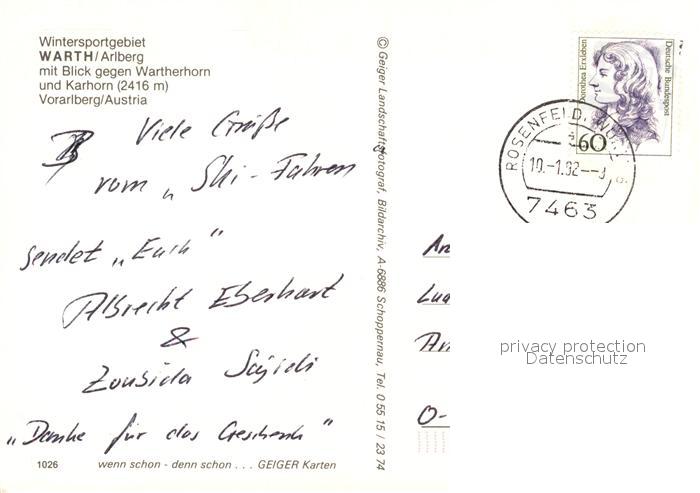 Wintersportgebiet
WARTH/Arlberg
mit Blick gegen Wartherhorn
und Karhorn (2416 m)
Vorarlberg/Austria
Viele Grüße
vom „Ski-Fahren
sendet „Euch"
Albrecht Eberhart
&
„Danke für das Geschenk"
1026 wenn schon - denn schon . . . GEIGER Karten
© Geiger Landschaftsfotograf, Bildarchiv, A-6886 Schoppernau, Tel. 0 55 15 / 23 74
Dorothea Erxleben
Deutsche Bundespost
60
ROSENFELD,
7463
An
O-
privacy protection
Datenschutz